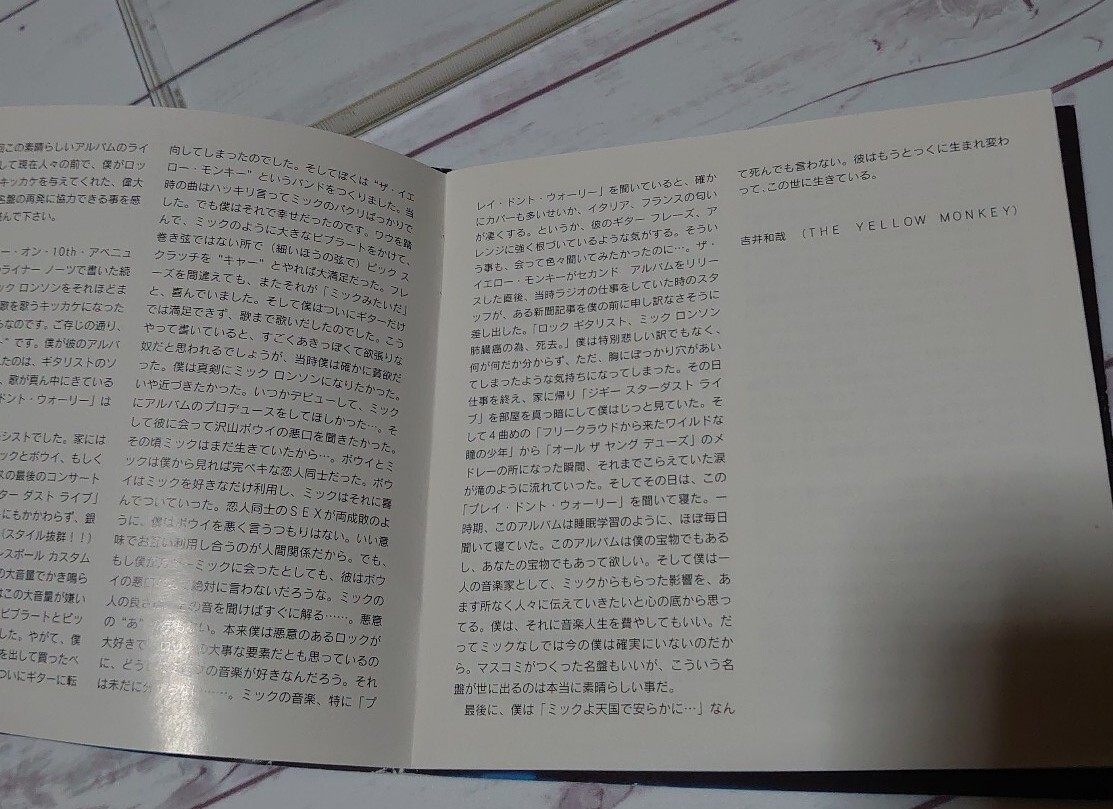 向この素晴らしいアルバムのライ
して現在人々の前で、僕がロッ
キッカケを与えてくれた、偉大
名盤の再発に協力できる事を感
んで下さい。
ー・オン・10th・アベニュ
ライナー ノーツで書いた続
ック ロンソンをそれほどま
歌を歌うキッカケになった
らなのです。ご存じの通り、
ド”です。僕が彼のアルバ
たのは、ギタリストのソ
、歌が真ん中にきている
ドント・ウォーリー」は
シストでした。家には
ックとボウイ、もしく
スの最後のコンサート
ター ダスト ライブ」
にもかかわらず、銀
（スタイル抜群！！）
スポール カスタム
の大音量でかき鳴ら
はこの大音量が嫌い
ビブラートとピッ
した。やがて、僕
を出して買ったベ
ついにギターに転
向してしまったのでした。そしてぼくは“ザ・イエ
ロー・モンキー”というバンドをつくりました。当
時の曲はハッキリ言ってミックのパクリばっかりで
した。でも僕はそれで幸せだったのです。ワウを踏
んで、ミックのように大きなビブラートをかけて、
巻き弦ではない所で（細いほうの弦で）ピック ス
クラッチを“キャー”とやれば大満足だった。フレ
ーズを間違えても、またそれが「ミックみたいだ」
と、喜んでいました。そして僕はついにギターだけ
では満足できず、歌まで歌いだしたのでした。こう
やって書いていると、すごくあきっぽくて欲張りな
奴だと思われるでしょうが、当時僕は確かに貪欲だ
った。僕は真剣にミック ロンソンになりたかった。
いや近づきたかった。いつかデビューして、ミック
にアルバムのプロデュースをしてほしかった…。そ
して彼に会って沢山ボウイの悪口を聞きたかった。
その頃ミックはまだ生きていたから…。ボウイとミ
ックは僕から見れば完ペキな恋人同士だった。ボウ
イはミックを好きなだけ利用し、ミックはそれに喜
んでついていった。恋人同士のＳＥＸが両成敗のよ
うに、僕はボウイを悪く言うつもりはない。いい意
味でお互い利用し合うのが人間関係だから。でも、
もし僕が ミックに会ったとしても、彼はボウ
イの悪 絶対に言わないだろうな。ミックの
人の良さ の音を聞けばすぐに解る……。悪意
の“あ” い。本来僕は悪意のあるロックが
大好きで の大事な要素だとも思っているの
に、どう の音楽が好きなんだろう。それ
は未だに分 ………。ミックの音楽、特に「プ
レイ・ドント・ウォーリー」を聞いていると、確か
にカバーも多いせいか、イタリア、フランスの匂い
が凄くする。というか、彼のギター フレーズ、ア
レンジに強く根づいているような気がする。そうい
う事も、会って色々聞いてみたかったのに…。ザ・
イエロー・モンキーがセカンド アルバムをリリー
スした直後、当時ラジオの仕事をしていた時のスタ
ッフが、ある新聞記事を僕の前に申し訳なさそうに
差し出した。「ロック ギタリスト、ミック ロンソン
肺臓癌の為、死去。」僕は特別悲しい訳でもなく、
何が何だか分からず、ただ、胸にぽっかり穴があい
てしまったような気持ちになってしまった。その日
仕事を終え、家に帰り「ジギー スターダスト ライ
ブ」を部屋を真っ暗にして僕はじっと見ていた。そ
して４曲めの「フリークラウドから来たワイルドな
瞳の少年」から「オール ザ ヤング デューズ」のメ
ドレーの所になった瞬間、それまでこらえていた涙
が滝のように流れていった。そしてその日は、この
「プレイ・ドント・ウォーリー」を聞いて寝た。一
時期、このアルバムは睡眠学習のように、ほぼ毎日
聞いて寝ていた。このアルバムは僕の宝物でもある
し、あなたの宝物でもあって欲しい。そして僕は一
人の音楽家として、ミックからもらった影響を、あ
ます所なく人々に伝えていきたいと心の底から思っ
てる。僕は、それに音楽人生を費やしてもいい。だ
ってミックなしでは今の僕は確実にいないのだか
ら。マスコミがつくった名盤もいいが、こういう名
盤が世に出るのは本当に素晴らしい事だ。
最後に、僕は「ミックよ天国で安らかに…」なん
て死んでも言わない。彼はもうとっくに生まれ変わ
って、この世に生きている。
吉井和哉 （THE YELLOW MONKEY）